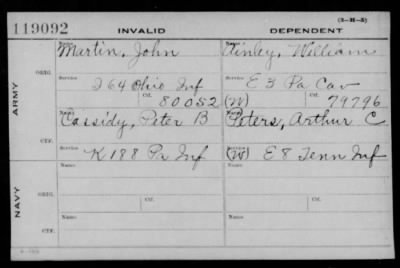 (3-M-5)
119092 INVALID DEPENDENT
Name Name
Martin, John Finley, William
ARMY
ORIG.
Service Service
I 64 Ohio Inf E 3 Pa Cav
Ctf. 80052 (W) Ctf. 79796
Name Name
Cassidy, Peter B Peters, Arthur C
CTF.
Service Service
K 188 Pa Inf (W) E 8 Tenn Inf
NAVY
ORIG.
Name Name
Service Service
Ctf. Ctf.
CTF.
Name Name